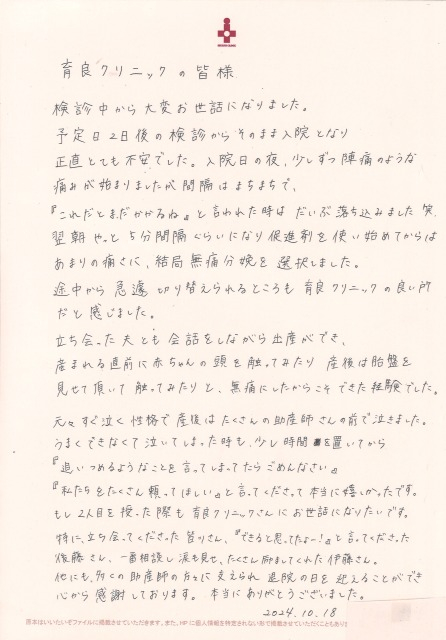 育良クリニックの皆様
検診中から大変お世話になりました。
予定日2日後の検診からそのまま入院となり
正直とても不安でした。入院日の夜、少しずつ陣痛のような
痛みが始まりましたが間隔はまちまちで、
『これだとまだかかるね』と言われた時はだいぶ落ち込みました笑
翌朝やっと5分間隔くらいになり促進剤を使い始めてからは
あまりの痛さに、結局無痛分娩を選択しました。
途中から急遽切り替えられるところも育良クリニックの良い所
だと感じました。
立ち会った夫とも会話をしながら出産ができ、
産まれる直前に赤ちゃんの頭を触ってみたり産後は胎盤を
見せて頂いて触ってみたりと、無痛にしたからこそできた経験でした。
元々すぐ泣く性格で産後はたくさんの助産師さんの前で泣きました。
うまくできなくて泣いてしまった時も、少し時間を置いてから
『追いつめるようなことを言ってしまってたらごめんなさい』
『私たちをたくさん頼ってほしい』と言ってくださって本当に嬉しかったです。
もし2人目を授った際も育良クリニックさんにお世話になりたいです。
特に、立ち会ってくださった皆りさん、『できると思ってたよー!』と言ってくださった
後藤さん、一番相談し涙も見せ、たくさん励ましてくれた伊藤さん。
他にも、多くの助産師の方々に支えられ退院の日を迎えることができ
心から感謝しております。本当にありがとうございました。
2024.10.18
原本はいいたいぞファイルに掲載させていただきます。また、HPに個人情報を特定されない形で掲載させていただくこともあり